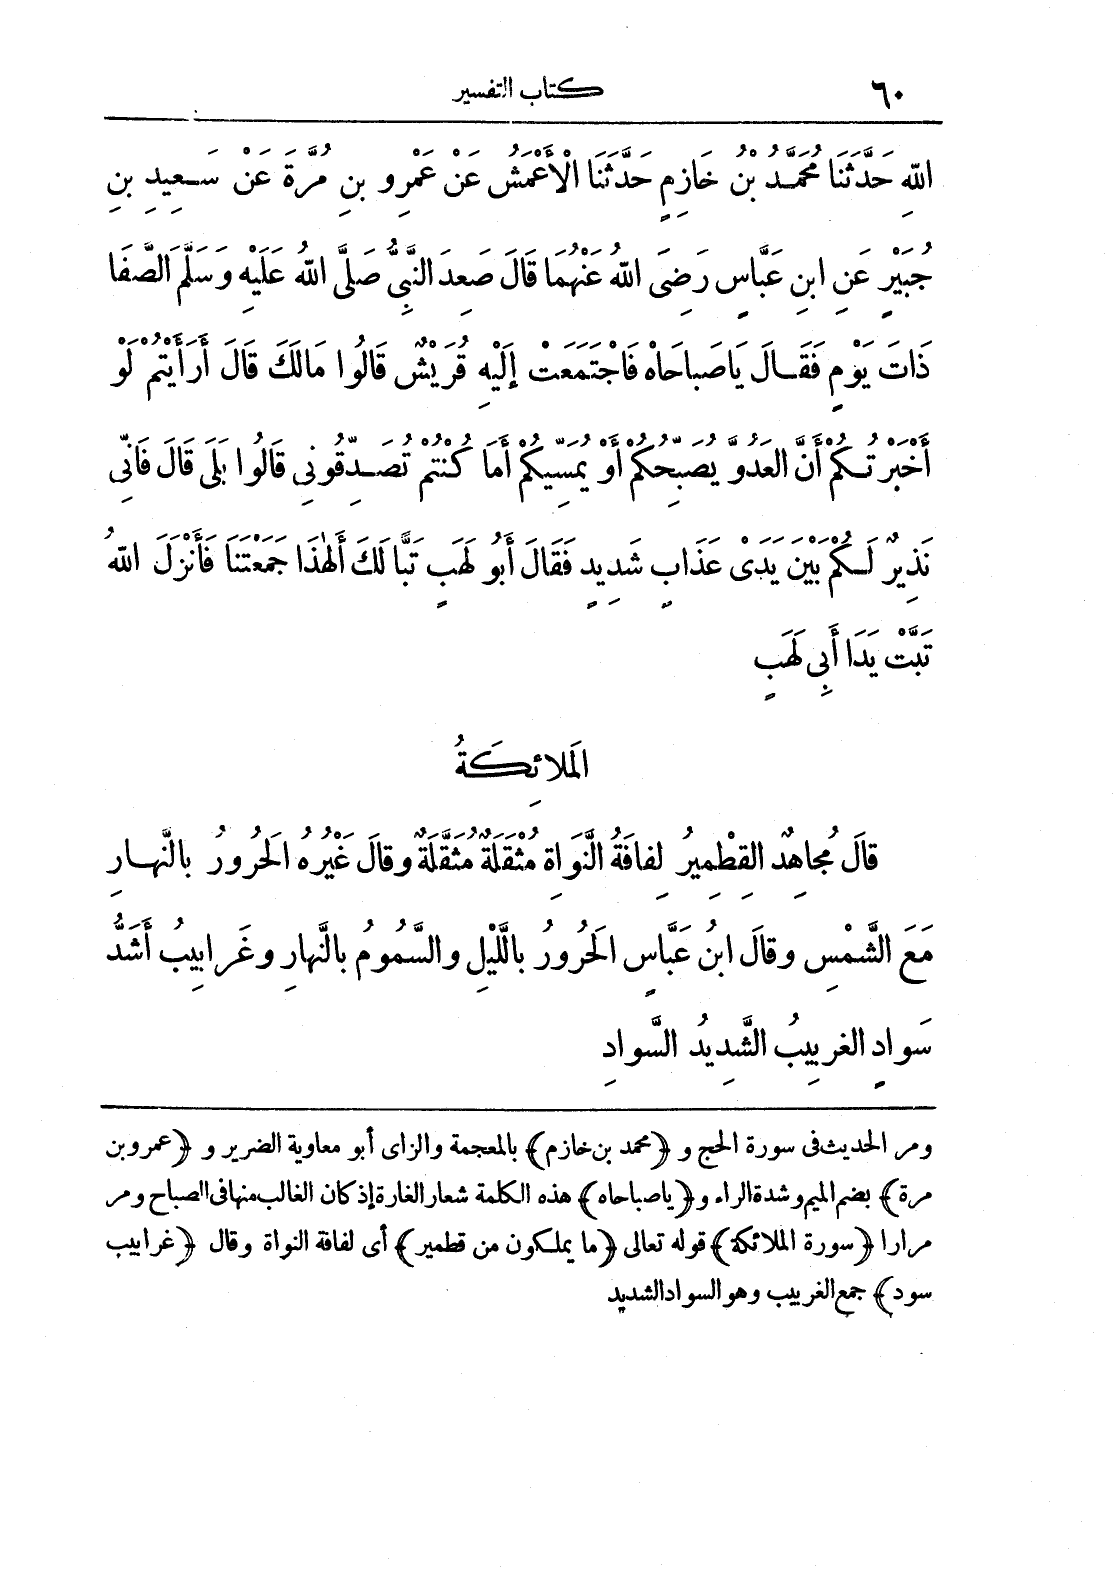 ٦٠ كتاب التفسير
اللهِ حَدَّثَنَا مُحَمَّدُ بْنُ خَازِمٍ حَدَّثَنَا الْأَعْمَشُ عَنْ عَمْرِو بنِ مُرَّةَ عَنْ سَعِيدِ بنِ
جُبَيْرٍ عَنِ ابنِ عَبَّاسٍ رَضِىَ اللهُ عَنْهُمَا قَالَ صَعِدَ النَّبِىُّ صَلَّى اللهُ عَلَيْهِ وَسَلَّمَ الصَّفَا
ذَاتَ يَوْمٍ فَقَالَ يَاصَبَاحَاهْ فَاجْتَمَعَتْ إِلَيْهِ قُرَيْشٌ قَالُوا مَالَكَ قَالَ أَرَأَيْتُمْ لَوْ
أَخْبَرْتُكُمْ أَنَّ العَدُوَّ يُصَبِّحُكُمْ أَوْ يُمَسِّيكُمْ أَمَا كُنْتُمْ تُصَدِّقُونِى قَالُوا بَلَى قَالَ فَانِّى
نَذِيرٌ لَكُمْ بَيْنَ يَدَىْ عَذَابٍ شَدِيدٍ فَقَالَ أَبُو لَهَبٍ تَبًّا لَكَ أَلِهٰذَا جَمَعْتَنَا فَأَنْزَلَ اللهُ
تَبَّتْ يَدَا أَبِى لَهَبٍ
المَلائِكَةُ
قالَ مُجاهِدٌ القِطْمِيرُ لِفافَةُ النَّوَاةِ مُثْقَلَةٌ مُثَقَّلَةٌ وقالَ غَيْرُهُ الحَرُورُ بالنَّهارِ
مَعَ الشَّمْسِ وقالَ ابنُ عَبَّاسٍ الحَرُورُ باللَّيْلِ والسَّمُومُ بالنَّهارِ وغَرابِيبُ أَشَدُّ
سَوادٍ الغربِيبُ الشَّدِيدُ السَّوادِ
ومر الحديث فى سورة الحج و ﴿محمد بن خازم﴾ بالمعجمة والزاى أبو معاوية الضرير و ﴿عمرو بن
مرة﴾ بضم الميم وشدة الراء و ﴿ياصباحاه﴾ هذه الكلمة شعار الغارة إذ كان الغالب منها فى الصباح ومر
مرارا ﴿سورة الملائكة﴾ قوله تعالى ﴿ما يملكون من قطمير﴾ أى لفافة النواة وقال ﴿غرابيب
سود﴾ جمع الغربيب وهو السواد الشديد